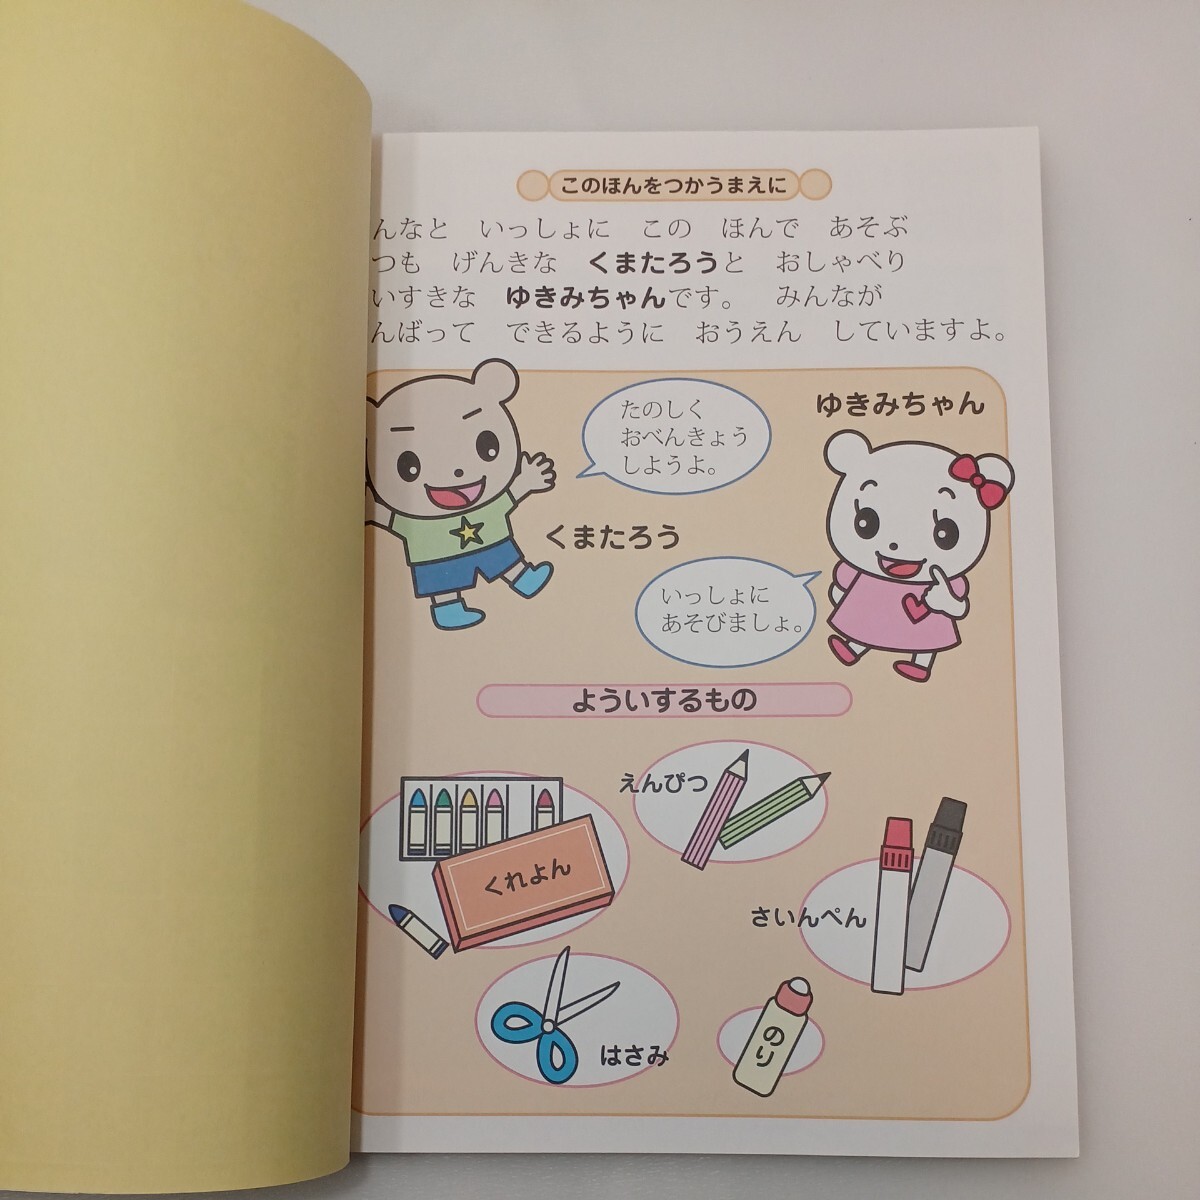 このほんをつかうまえに
んなと　いっしょに　この　ほんで　あそぶ
つも　げんきな　くまたろうと　おしゃべり
いすきな　ゆきみちゃんです。　みんなが
んばって　できるように　おうえん　していますよ。
たのしく
おべんきょう
しようよ。
ゆきみちゃん
くまたろう
いっしょに
あそびましょ。
よういするもの
えんぴつ
くれよん
さいんぺん
はさみ
のり